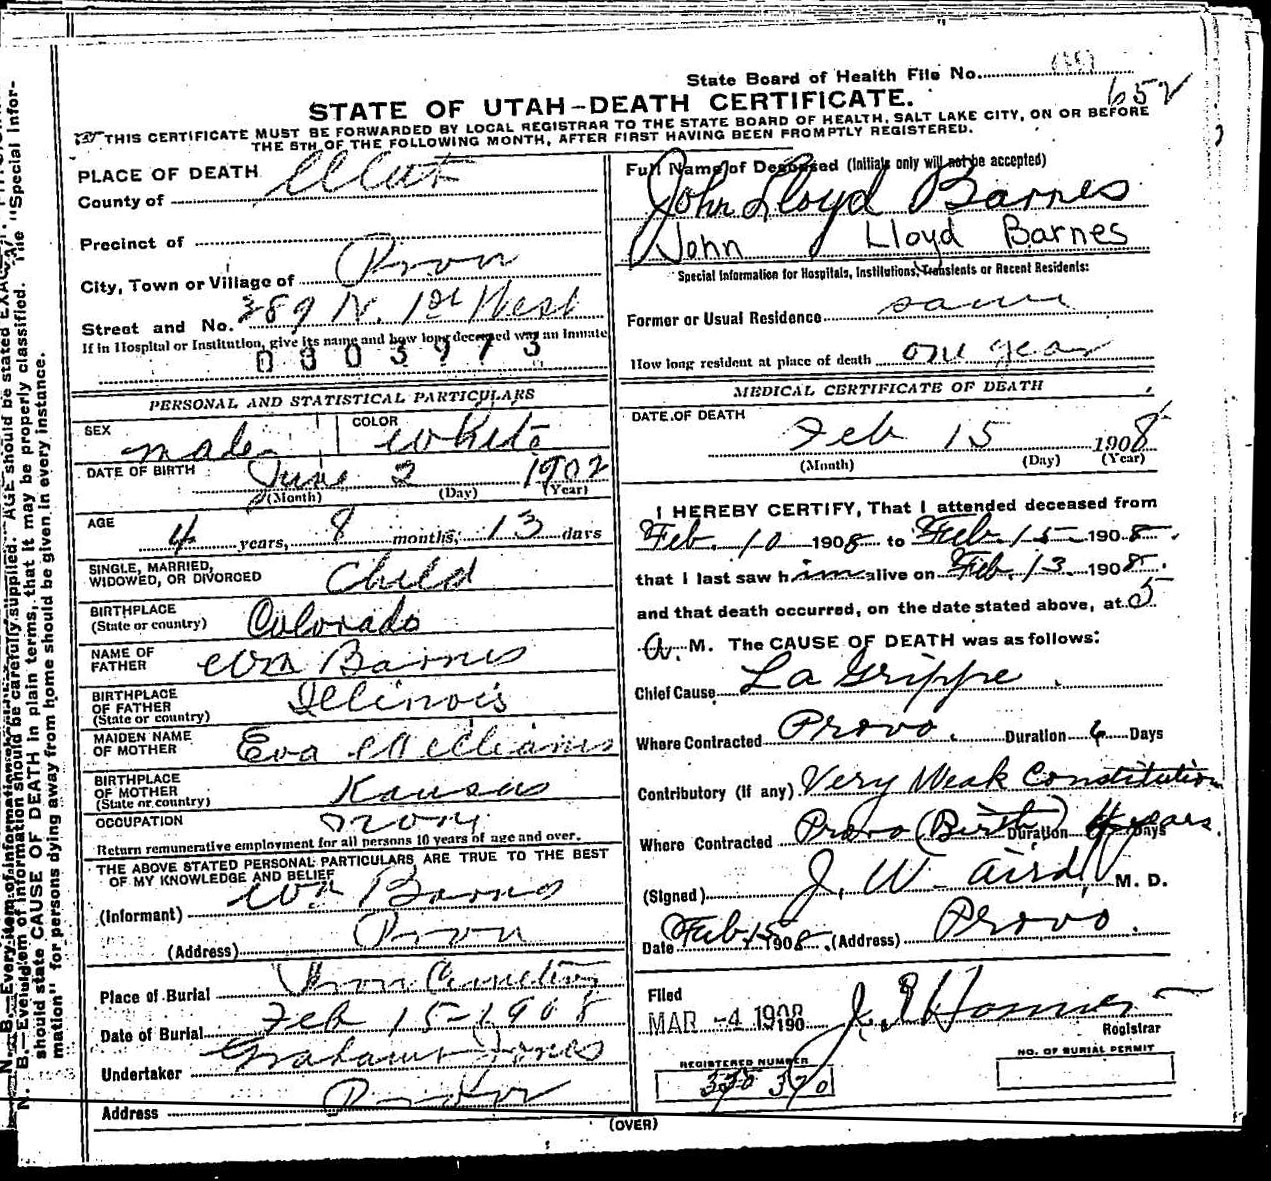 State Board of Health File No.
652
STATE OF UTAH—DEATH CERTIFICATE.
THIS CERTIFICATE MUST BE FORWARDED BY LOCAL REGISTRAR TO THE STATE BOARD OF HEALTH, SALT LAKE CITY, ON OR BEFORE
THE 5TH OF THE FOLLOWING MONTH, AFTER FIRST HAVING BEEN PROMPTLY REGISTERED.
PLACE OF DEATH
County of Utah
Precinct of
City, Town or Village of Provo
Street and No. 389 N. 1st West
If in Hospital or Institution, give its name and how long deceased was an inmate
0803973
PERSONAL AND STATISTICAL PARTICULARS
SEX male COLOR White
DATE OF BIRTH June 2 1902
(Month) (Day) (Year)
AGE 4 years, 8 months, 13 days
SINGLE, MARRIED,
WIDOWED, OR DIVORCED Child
BIRTHPLACE
(State or country) Colorado
NAME OF
FATHER Wm Barnes
BIRTHPLACE
OF FATHER
(State or country) Illinois
MAIDEN NAME
OF MOTHER Eva Williams
BIRTHPLACE
OF MOTHER
(State or country) Kansas
OCCUPATION
Return remunerative employment for all persons 10 years of age and over.
THE ABOVE STATED PERSONAL PARTICULARS ARE TRUE TO THE BEST
OF MY KNOWLEDGE AND BELIEF
(Informant) Wm Barnes
(Address) Provo
Place of Burial Provo Cemetery
Date of Burial Feb 15-1908
Undertaker Graham Jones
Address Provo
Full Name of Deceased (Initials only will not be accepted)
John Lloyd Barnes
John Lloyd Barnes
Special Information for Hospitals, Institutions, Transients or Recent Residents:
Former or Usual Residence same
How long resident at place of death one year
MEDICAL CERTIFICATE OF DEATH
DATE OF DEATH
Feb 15 1908
(Month) (Day) (Year)
I HEREBY CERTIFY, That I attended deceased from
Feb. 10 1908 to Feb. 15 1908.
that I last saw him alive on Feb. 13 1908.
and that death occurred, on the date stated above, at 5
A. M. The CAUSE OF DEATH was as follows:
Chief Cause La Grippe.
Where Contracted Provo. Duration 6 Days
Contributory (If any) Very Weak Constitution
Where Contracted Provo (Birth) Duration 4 years Days
(Signed) J. W. Aird M. D.
Date Feb 15 1908. (Address) Provo.
Filed
MAR -4 1908 190 J. E. Homer
Registrar
REGISTERED NUMBER
370
NO. OF BURIAL PERMIT
(OVER)
N. B.—Every item of information should be carefully supplied. AGE should be stated
should state CAUSE OF DEATH in plain terms, that it may be properly classified. The "Special Infor-
mation" for persons dying away from home should be given in every instance.